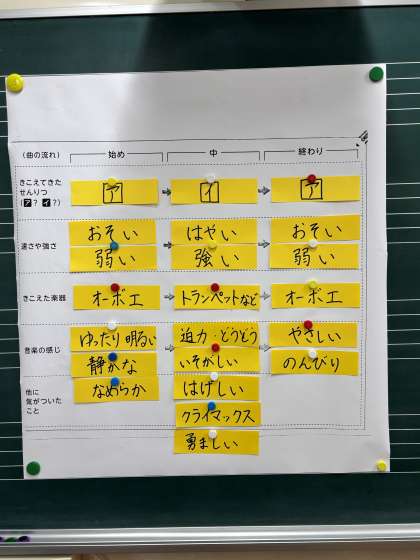 (曲の流れ) 始め 中 終わり
きこえてきた
せんりつ
(ア? イ?)
ア イ ア
おそい はやい おそい
速さや強さ
弱い 強い 弱い
きこえた楽器 オーボエ トランペットなど オーボエ
ゆったり 明るい 迫力・どうどう やさしい
音楽の感じ
静かな いそがしい のんびり
なめらか はげしい
他に
気がついた
こと
クライマックス
勇ましい